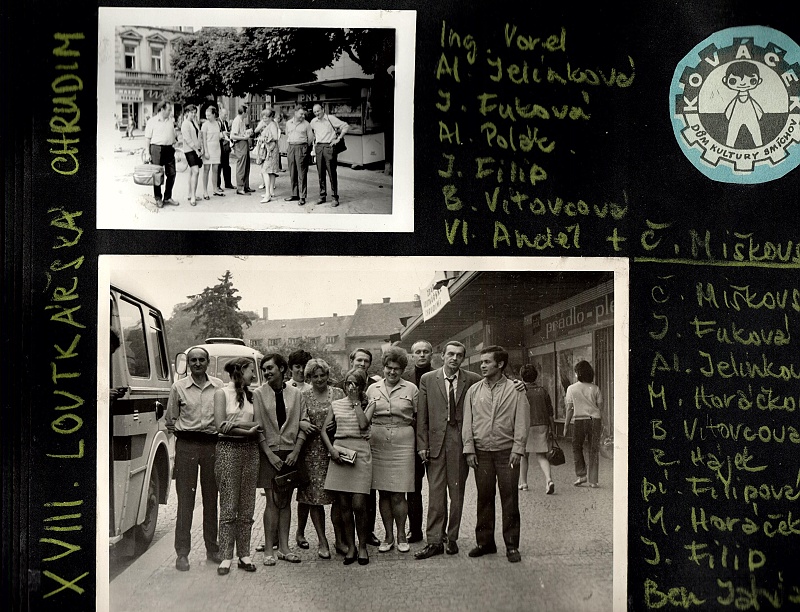 XVIII. LOUTKÁŘSKÁ CHRUDIM
Ing. Vorel
Al. Jelínková
J. Fuková
Al. Polák
J. Filip
B. Vítovcová
Vl. Anděl + Č. Miškovs
KOVÁČEK
DŮM KULTURY SMÍCHOV
Č. Miškovs
J. Fuková
Al. Jelínkov
M. Horáčko
B. Vítovcova
Hájek
pí. Filipova
M. Horáček
J. Filip
Ben
prádlo-ple